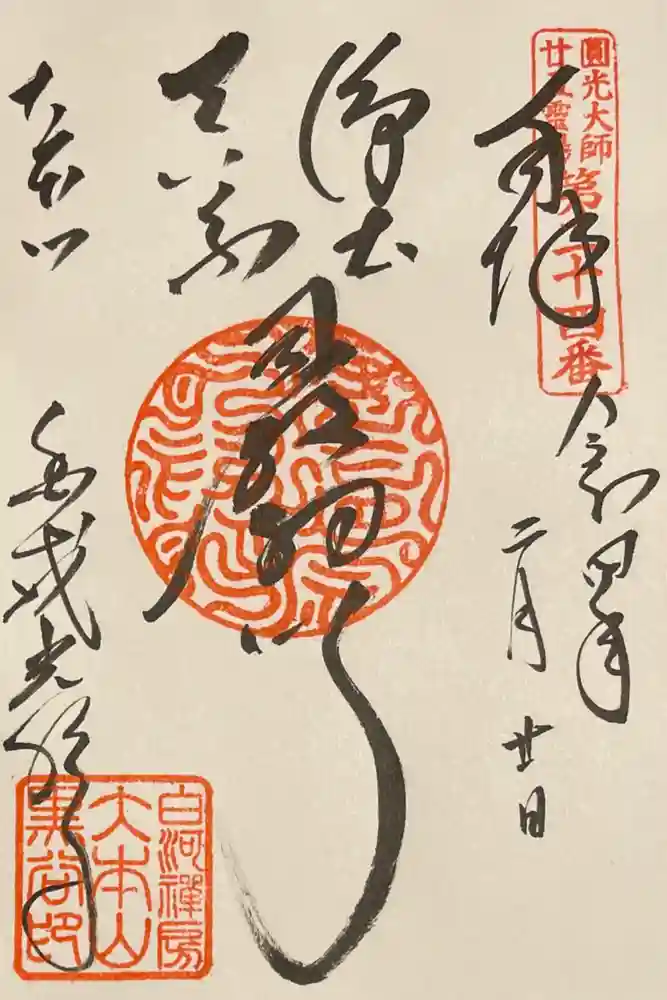 圓光大師
廿五霊場
第二十四番
奉拝
令和四年
二月廿日
浄土
真宗
最初門
大本山
金戒光明寺
白河禪房
大本山
黒谷印